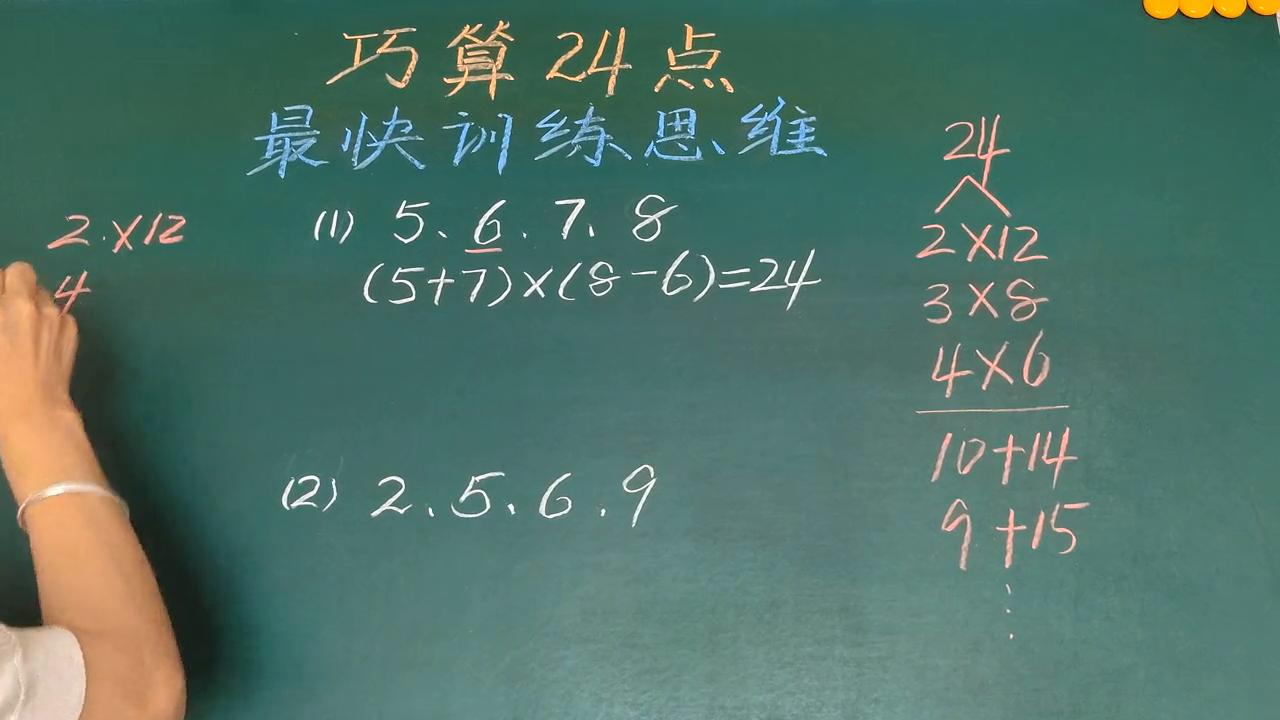 巧算24点
最快训练思维
(1) 5、6、7、8
(5+7)×(8-6)=24
(2) 2、5、6、9
2×12
4
24
2×12
3×8
4×6
10+14
9+15
⋮